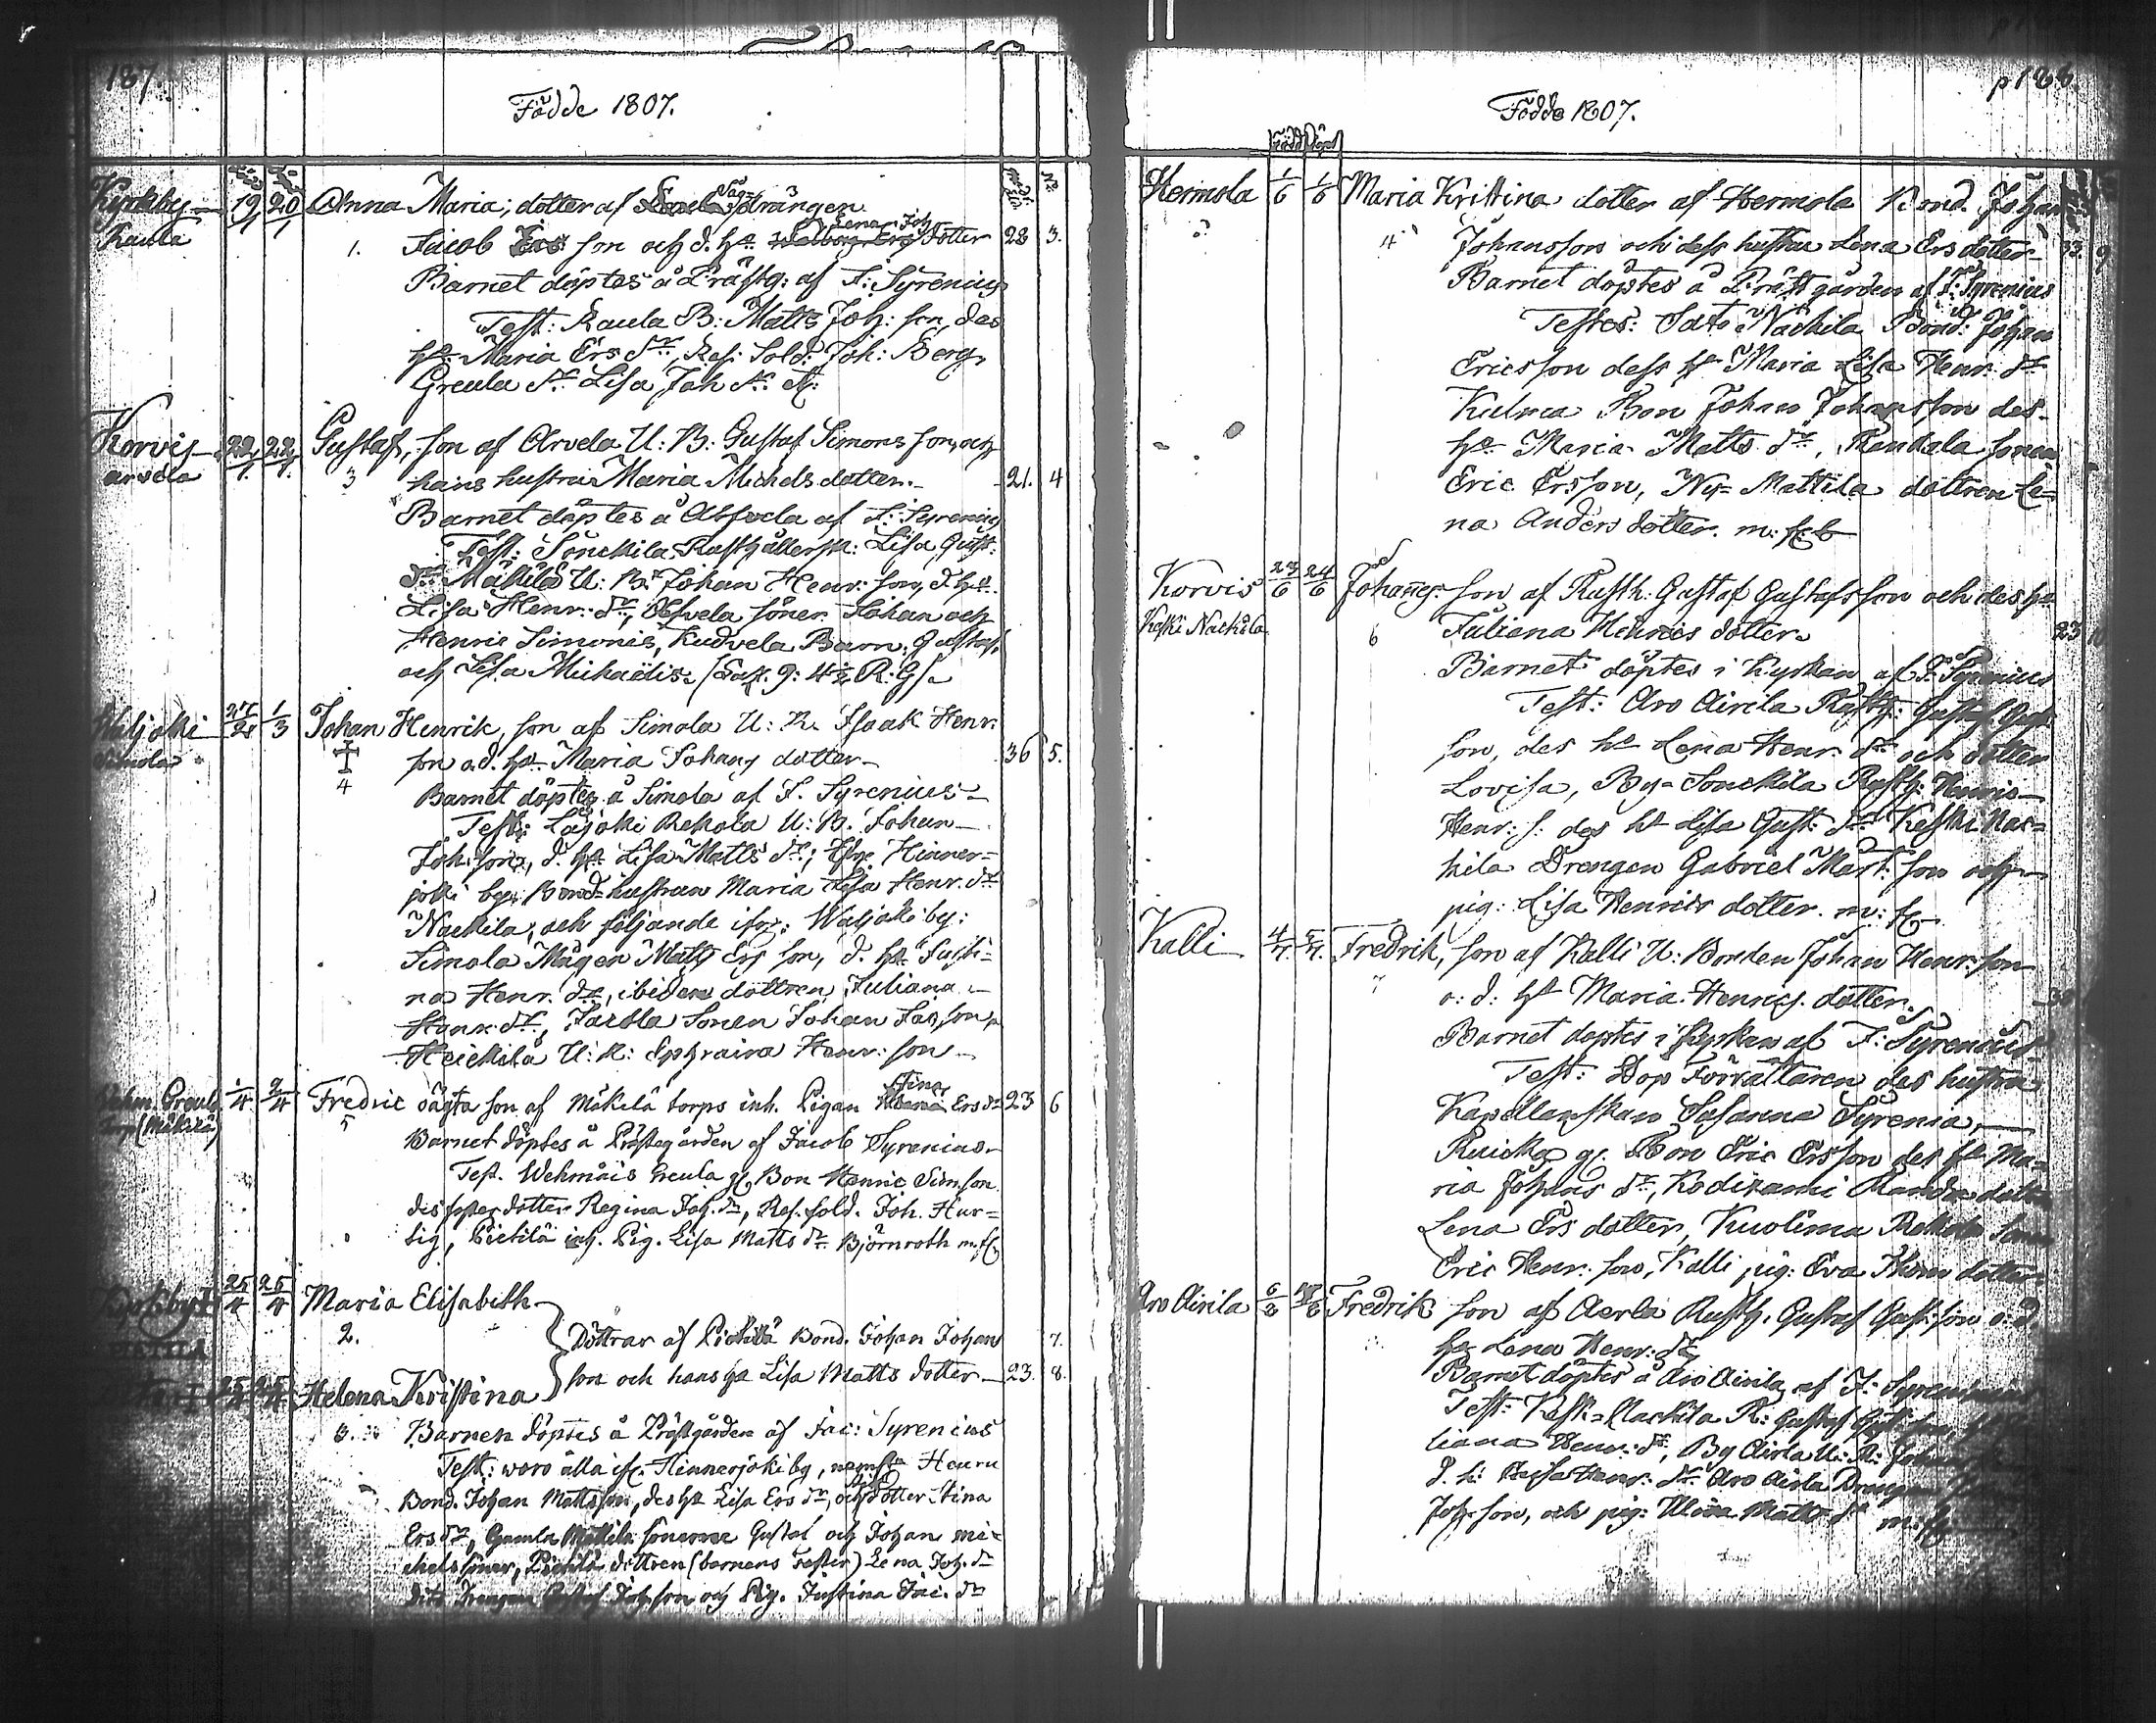 187
Födde 1807.
Kyrkby 19/1 20/1 Anna Maria, dotter af drängen
Raula 1. Jacob son och d. hu Lena Joh dotter 28 3.
Barnet döptes å Prästg: af J: Syrenius
Test: Raula B: Matts Joh: son, des
hu Maria Ers dr. Res: Sold: Joh: Berg,
Greula dr Lisa Joh dr
Korvis 22/1. 22/1. Gustaf, son af Arvela U: B: Gustaf Simons son, och
arvela 3 hans hustru Maria Michels dotter. 21. 4
Barnet döptes å af J: Syrenius
Test: Sönckila Rusthållersk: Lisa Gust:
dr Mäkilä U: B: Johan Henr: son, d. hu
Lisa Henr: dr, söner Johan och
Henric Simonis, Kudvela Barn: Gustaf
och Lisa Michaëlis
Waljoki 1/3 Johan Henrik, son af Simola U: B. Isaak Henr:
Simola 4 son o d. hu Maria Johans dotter 36 5.
Barnet döptes å Simola af J. Syrenius
Test: Rekola U: B. Johan
Joh: son, d. hu Lisa Matts dr; Hinner=
joki by: Bond hustrun Maria Lisa Henr. dr
Nackila, och följande ifr: Waljoki by:
Simola Mågen Matts Ers son, d. hu Justi=
na Henr. dr, ibidem dottren Juliana
Henr: dr, Jacola Sonen Johan Jac, son,
Heickilä U: B: Ephraim Henr: son
Greula 1/4 2/4 Fredric oägta son af Mäkelä torps inh. Pigan Stina Ers dr 23 6
(Mäkilä) 5 Barnet döptes å Prästegården af Jacob Syrenius
Test. Wehmäis Greula Bon Henric Simson
des foster dotter Regina Joh. dr, Res. sold. Joh. Hur=
tig, Pietilä inh. Pig. Lisa Matts dr Björnroth m. fl
Kyrkby 25/4 25/4 Maria Elisabeth
PIETILA 2. Döttrar af Pietilä Bond. Johan Johans 7.
25/4 25/4 Helena Kristina son och hans hu Lisa Matts dotter 23. 8.
3. Barnen döptes å Prästgården af Jac: Syrenius
Test: woro alla ifr. Hinnerjoki by, nemst
Bond. Johan Mattsson, des hu Lisa Ers dr, och dotter Stina
Ers dr, Gamla Mattila sönerne Gustaf och Johan mi=
chelssöner, Pietilä dottren (barnens Faster) Lena Joh. dr
dito Drengen Gustaf Joh, son och Pig. Justina Jac. dr
p 188.
Födde 1807.
Född Döpt
Hermola 1/6 1/6 Maria Kristina dotter af Hermola Bond. Johan
4 Johansson och dess hustru Lena Ers dotter 33. 9
Barnet döptes å Prästgården af J: Syrenius
Testes: Sato Nackila Bond: Johan
Ericsson dess hu Maria Lisa Henr: dr
Kulma Bon Johan Johansson des
hu Maria Matts dr, Randala sonen
Eric Ersson, Ny= Mattila dottren Le=
na Anders dotter. m: fl:
Korvis 23/6 24/6 Johannes son af Rusth: Gustaf Gustafsson och des hu
Keski Nackila 6 Juliana Henrics dotter 23 10
Barnet döptes i Kyrkan af J: Syrenius
Test: Aro Airila Rusth: Gustaf Gust
son, des hu Lena Henr: dr och dotter
Lovisa, By= Sonckila Rusth: Henric
Henr: s: des hu Lisa Gust: dr Keski Nac=
kila Drengen Gabriel Mårt: son och
pig: Lisa Henrics dotter. m: fl
Kalli 4/7. 5/7. Fredrik, son af Kalli U: Bonden Johan Henr: son
o: d: hu Maria Henrics. dotter.
Barnet döptes i Kyrkan af J: Syrenius.
Test: Dop Förrättaren des hustru
Kapellanskan Susanna Syrenia,
Ruicka Bon Eric Ersson des hu Ma=
ria Johans dr, Kodikami Randa dotter
Lena Ers dotter, Kuolima Rekola Sonen
Eric Henr: son, Kalli pig: Eva dotter
Aro Airila 6/8 Fredrik son af Aerla Rusth. Gustaf Gust: son o. d.
hu Lena Henr: dr
Barnet döptes å Aro Airila af J: Syrenius
Test: Kesk= Nackila R: Gustaf
liana Henr: dr, By Airla U: R: Johan
d. h: Henr: dr Aro Airla Drengen
Joh. son, och pig: Matts dr m: fl